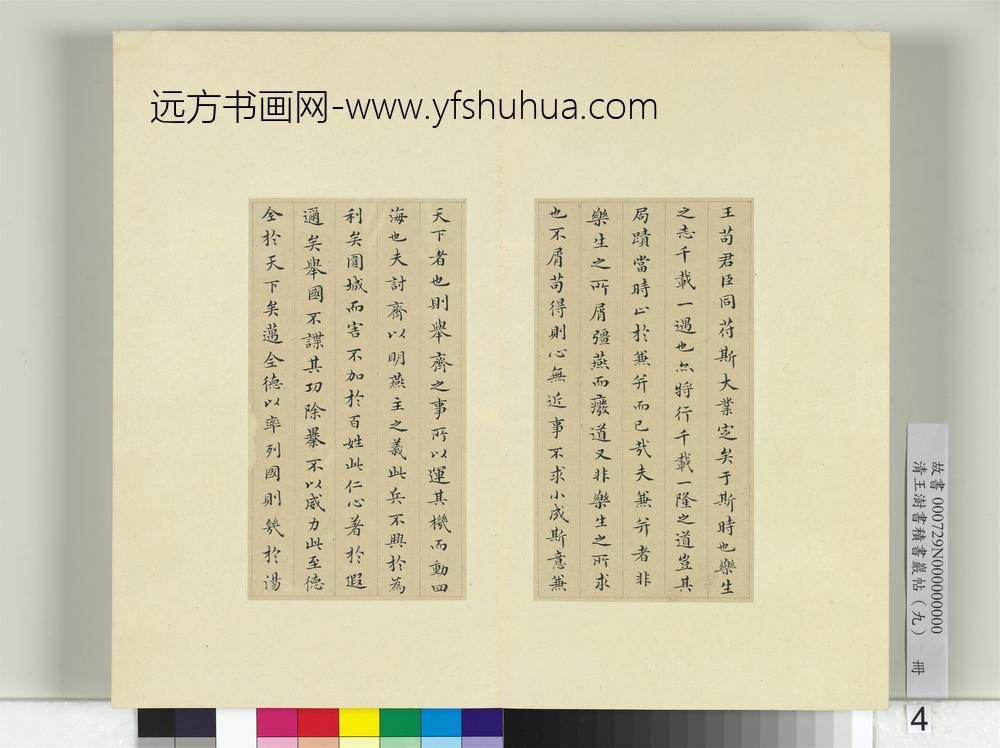 远方书画网-www.yfshuhua.com
王苟君臣同苻斯大業定矣于斯時也樂生
之志千載一遇也亦將行千載一隆之道豈其
局蹟當時止於兼并而已哉夫兼并者非
樂生之所屑彊燕而癈道又非樂生之所求
也不屑苟得則心無近事不求小成斯意兼
天下者也則舉齊之事所以運其機而動四
海也夫討齊以明燕主之義此兵不興於為
利矣圍城而害不加於百姓此仁心著於遐
邇矣舉國不謀其功除暴不以威力此至德
全於天下矣邁全德以率列國則幾於湯
故書 000729N000000000
清王澍書積書巖帖(九) 冊
4